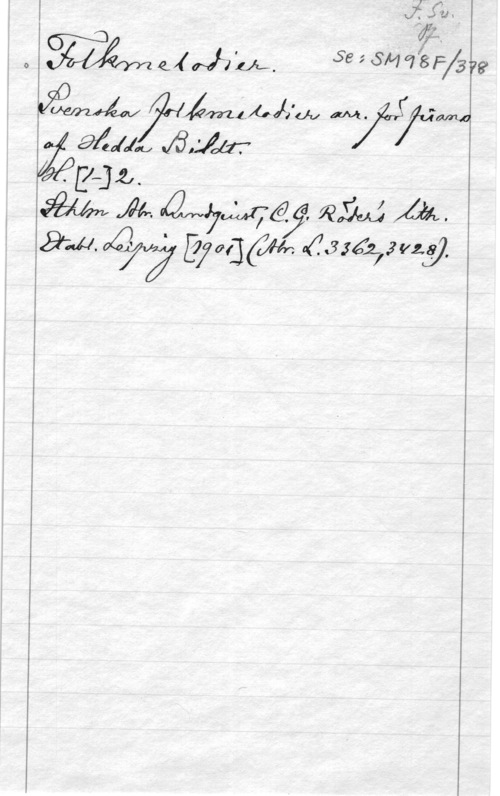 F. Sv.
Pf.
Folkmelodier.
Se: SM98F/378
Svenska folkmelodier arr. för piano
af Hedda Bildt.
H. [1-]2.
Sthlm Abr. Lundquist, C.G. Röder's lith.
Etabl. Leipzig [1901] (Abr. L. 3362, 3428).